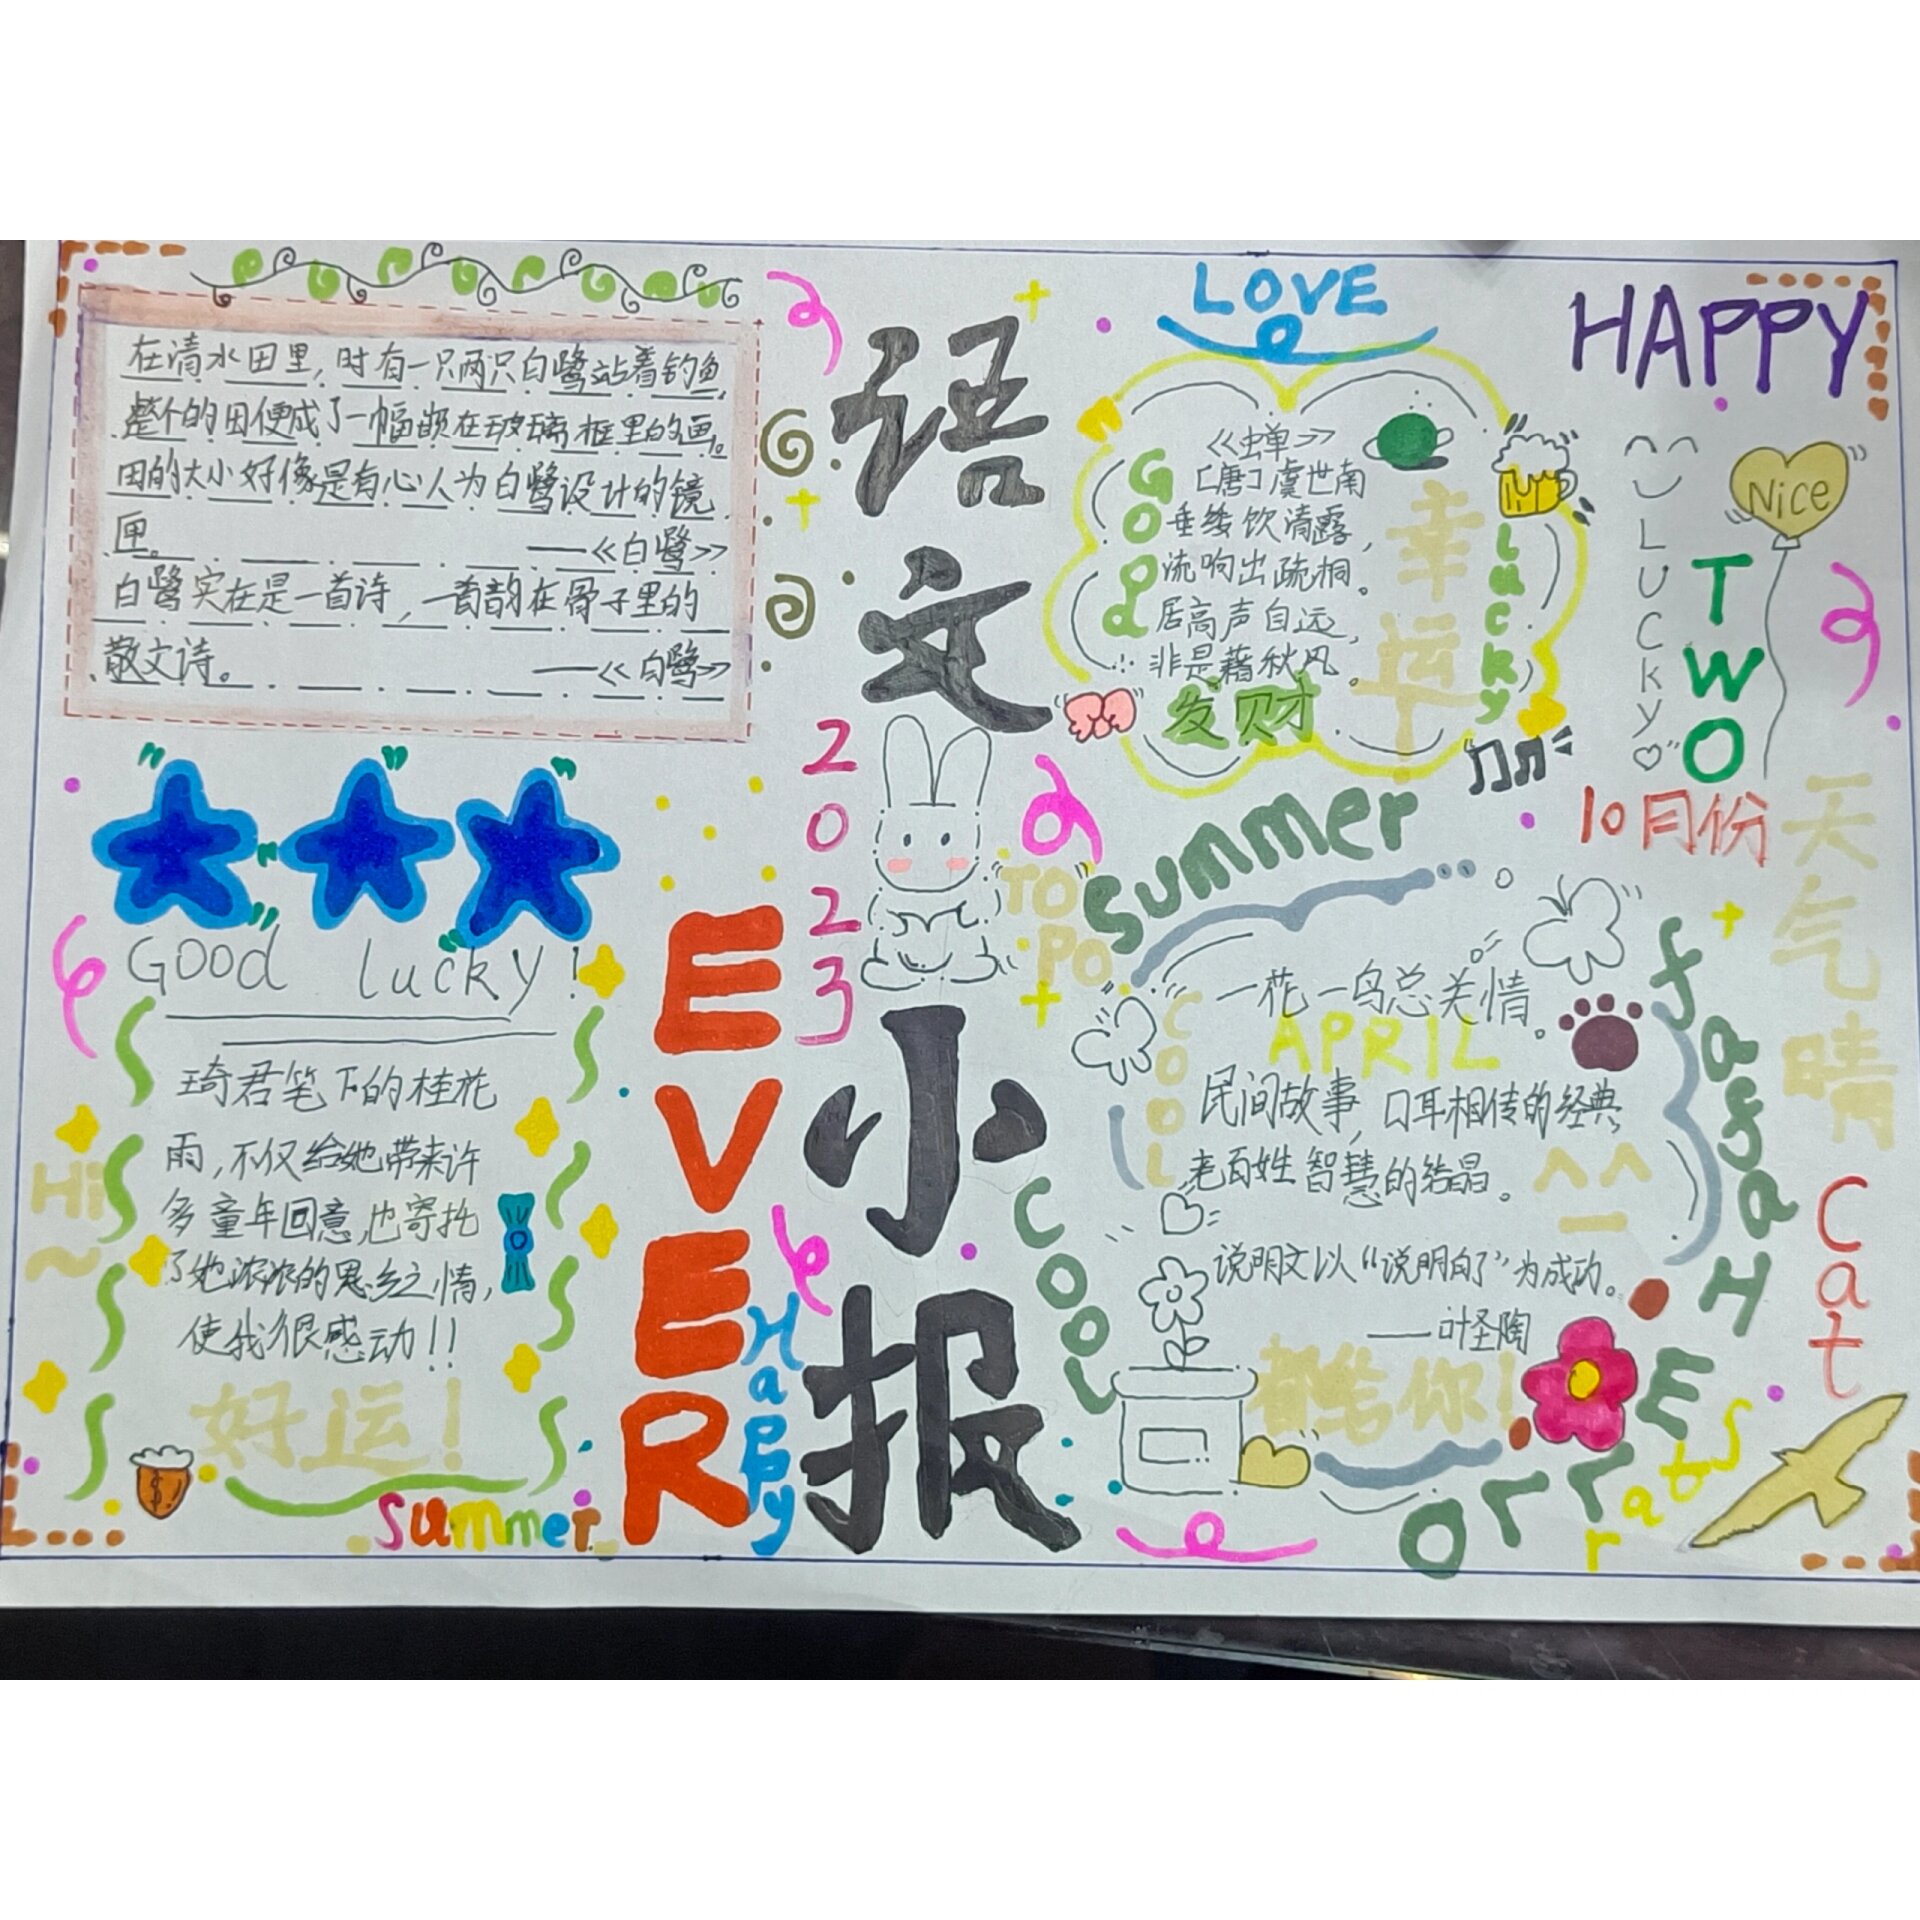 在清水田里,时有一只两只白鹭站着钓鱼,
整个的田便成了一幅嵌在玻璃框里的画。
田的大小好像是有心人为白鹭设计的镜
匣。 ——《白鹭》
白鹭实在是一首诗,一首韵在骨子里的
散文诗。 ——《白鹭》
Good lucky!
琦君笔下的桂花
雨,不仅给她带来许
多童年回意,也寄托
了她浓浓的思乡之情,
使我很感动!!
好运!
Hi~
summer
EVER
Happy
语文小报
2023
TOPO
LOVE
Good
《蝉》
[唐]虞世南
垂绥饮清露,
流响出疏桐。
居高声自远,
非是藉秋风。
发财
幸运
Lucky
HAPPY
LUCKY
Nice
TWO
10月份
天气晴
summer
COOL
一花一鸟总关情。
APRIL
民间故事,口耳相传的经典,
老百姓智慧的结晶。
说明文以“说明白了”为成功。
——叶圣陶
都给你!
Cool
Cat